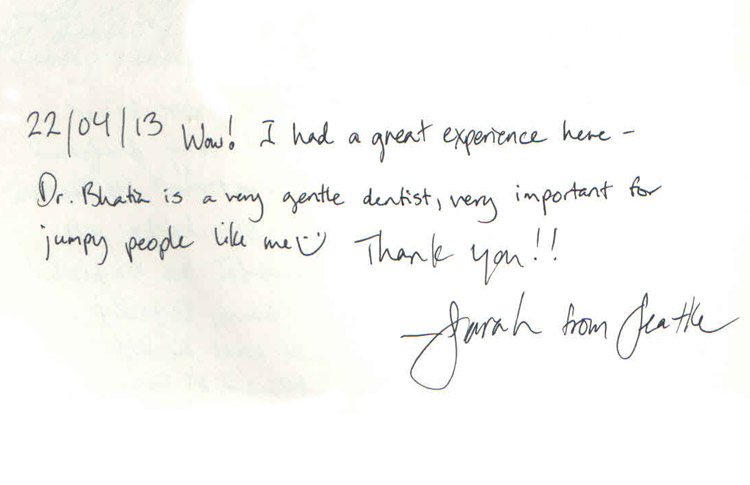 22/04/13 Wow! I had a great experience here -
Dr. Bhatia is a very gentle dentist, very important for
jumpy people like me :) Thank you!!
—Sarah from Seattle